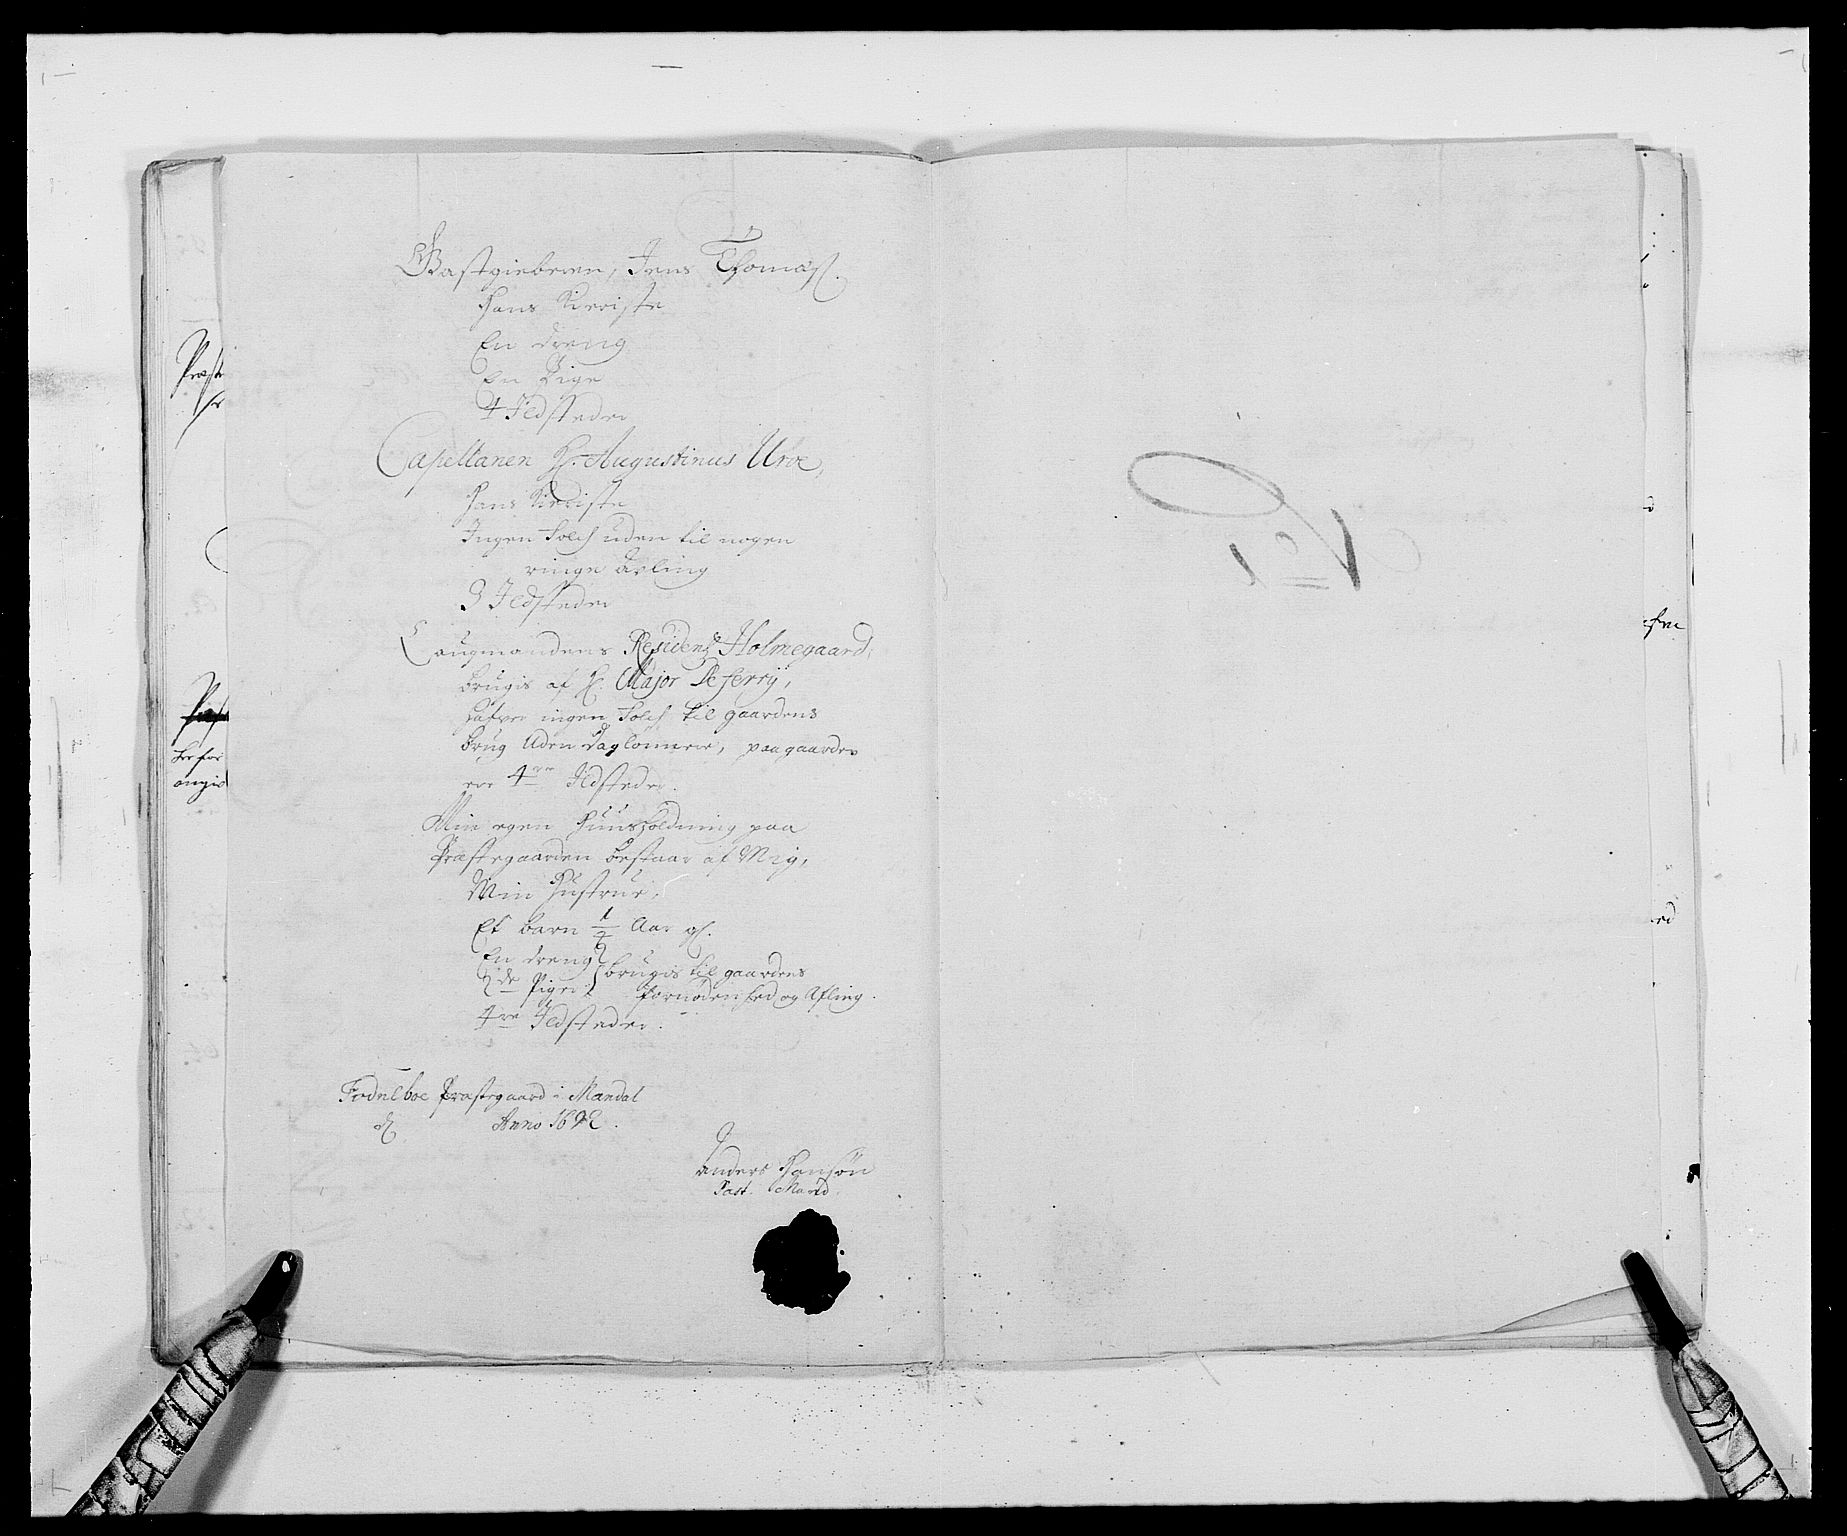 Gastgieberen, Jens Thomæs.
Hans Kieriste
En dreng
En Pige
4 Ildsteder
Capellanen H. Augustinus Uroe,
Hans Kieriste
Ingen Folch uden til nogen
ringe Avling
3 Ildsteder
Laugmandens Residentz Holmegaard,
brugis af H. Major De ferrÿ,
hafver ingen Folch til gaardens
brug uden daglønnere, paa gaarden
ere 4re Ildsteder.
Min egen Huusholdning paa
Præstegaarden bestaar af Mig,
Min Hustrue,
Et barn 1/4 Aar gl.
En dreng
2de Piger
brugis til gaardens
fornødenhed og Afling.
4re Ildsteder.
Præstegaard i Mandal
d Anno 1692.
Anders Hansøn
Past. Mand.
No 1